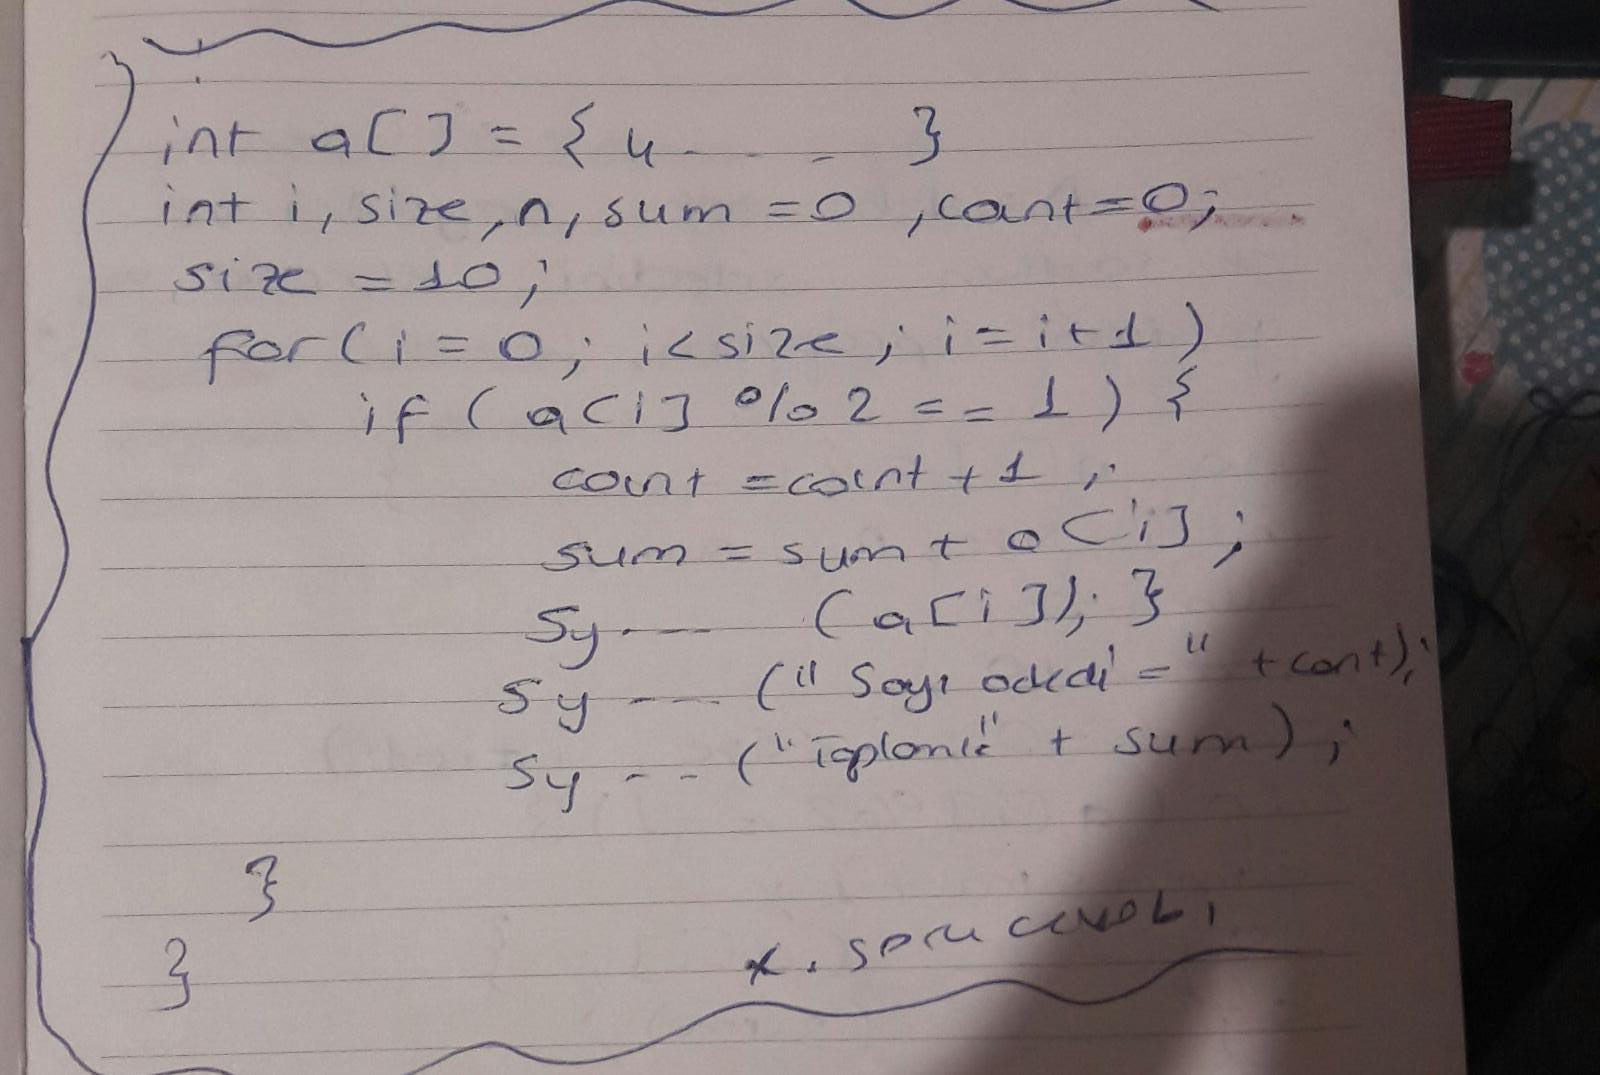 int a[] = {4 - - - }
int i, size, n, sum = 0 , count = 0;
size = 10;
for(i = 0; i < size; i = i+1)
if (a[i] % 2 == 1) {
count = count + 1;
sum = sum + a[i];
Sy.--- (a[i]); }
Sy ---- ("Sayı adedi =" + count);
Sy --- ("Toplamı=" + sum);
}
}
soru cevabı